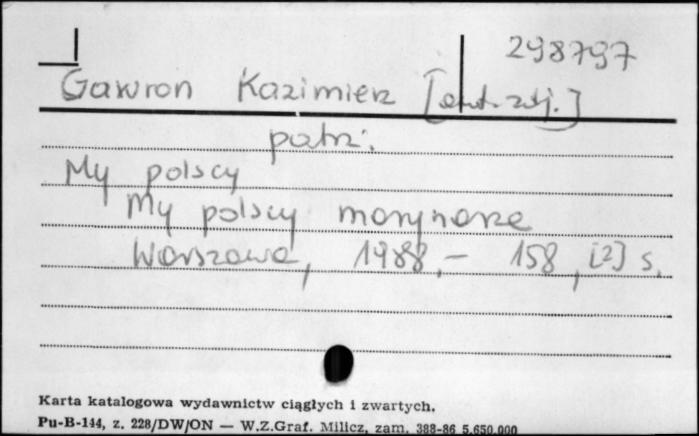 298797
Gawron Kazimierz [aut. zdj.]
patrz:
My polscy
My polscy marynarze
Warszawa, 1988. - 158, [2] s.
Karta katalogowa wydawnictw ciągłych i zwartych.
Pu-B-144, z. 228/DW/ON — W.Z.Graf. Milicz, zam. 388-86 5.650.000